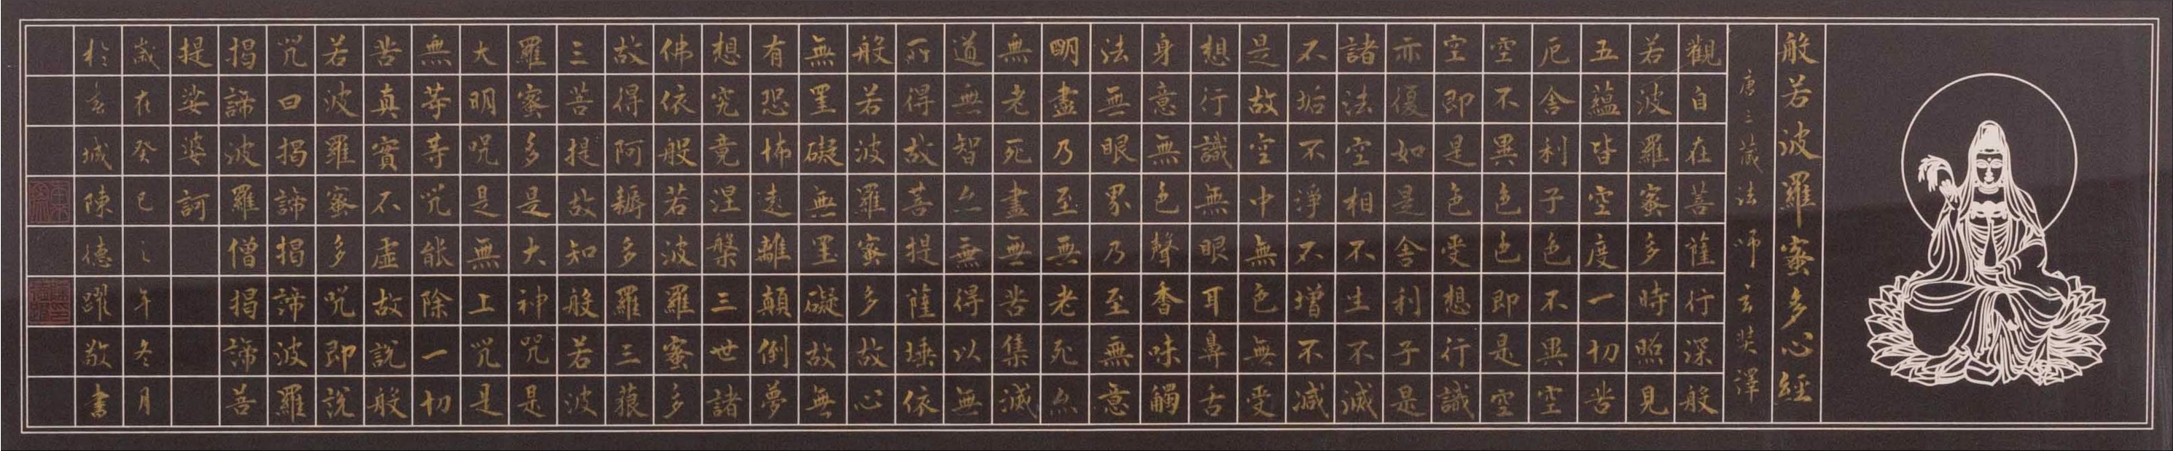 般若波羅蜜多心經
唐三藏法師玄奘譯
觀自在菩薩行深般
若波羅蜜多時照見
五蘊皆空度一切苦
厄舍利子色不異空
空不異色色即是空
空即是色受想行識
亦復如是舍利子是
諸法空相不生不滅
不垢不淨不增不減
是故空中無色無受
想行識無眼耳鼻舌
身意無色聲香味觸
法無眼界乃至無意
明盡乃至無老死亦
無老死盡無苦集滅
道無智亦無得以無
所得故菩提薩埵依
般若波羅蜜多故心
無罣礙無罣礙故無
有恐怖遠離顛倒夢
想究竟涅槃三世諸
佛依般若波羅蜜多
故得阿耨多羅三藐
三菩提故知般若波
羅蜜多是大神咒是
大明咒是無上咒是
無等等咒能除一切
苦真實不虛故說般
若波羅蜜多咒即說
咒曰揭諦揭諦波羅
揭諦波羅僧揭諦菩
提娑婆訶
歲在癸巳之年冬月
於城陳德躍敬書